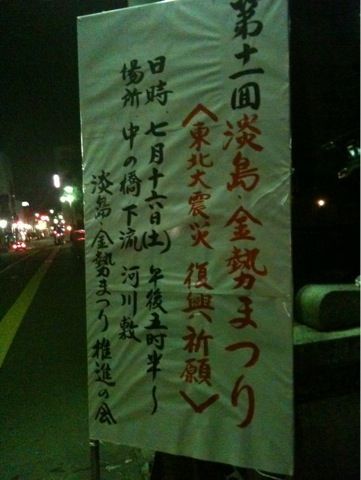 第十一回淡島・金勢まつり
〈東北大震災 復興祈願〉
日時 七月十六日(土)午後五時半～
場所 中の橋下流 河川敷
淡島・金勢まつり推進の会